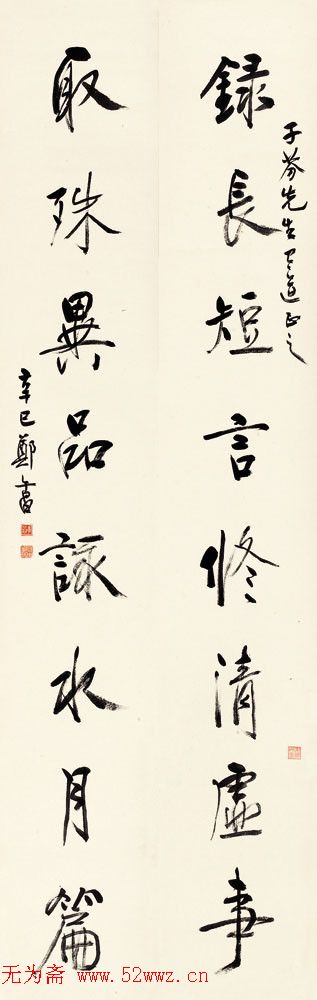 子芬先生有道正之
錄長短言修清虛事
取珠異品詠水月篇
辛巳鄭午昌
无为斋 www.52wwz.cn